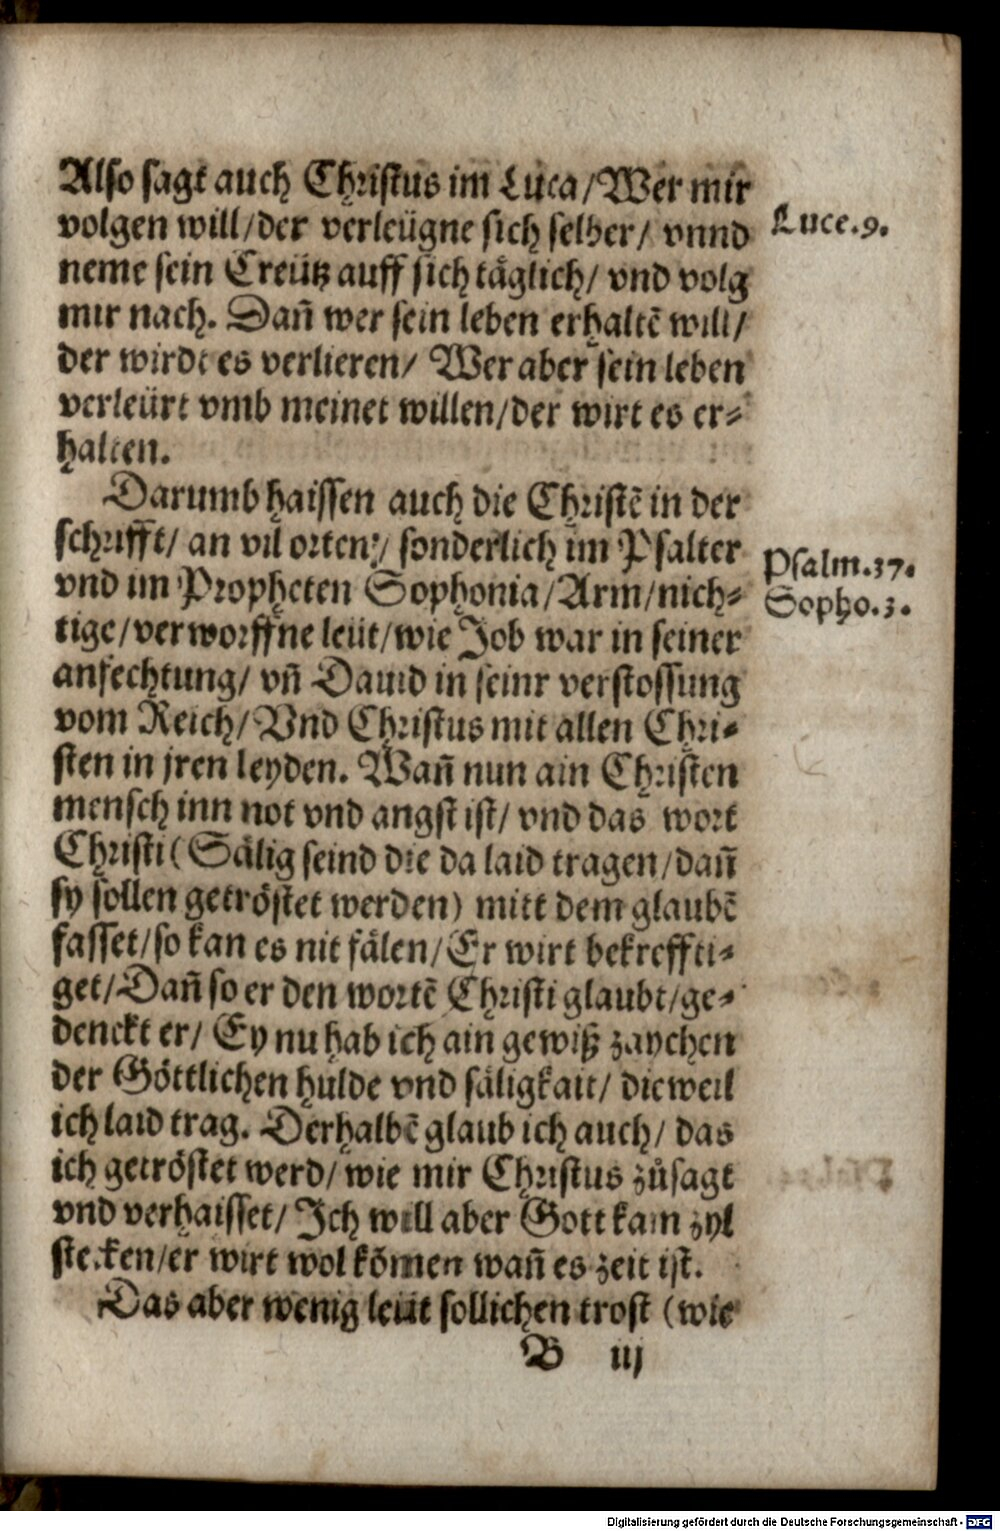 Also sagt auch Christus im Luca/Wer mir
volgen will/der verleügne sich selber/ vnnd
Luce.9.
neme sein Creütz auff sich täglich/ vnd volg
mir nach. Dañ wer sein leben erhaltẽ will/
der wirdt es verlieren/ Wer aber sein leben
verleürt vmb meinet willen/der wirt es er⸗
halten.
Darumb haissen auch die Christẽ in der
schrifft/ an vil orten/ sonderlich im Psalter
Psalm.37.
vnd im Propheten Sophonia/Arm/nich⸗
Sopho.3.
tige/verworffne leüt/wie Job war in seiner
anfechtung/ vñ Dauid in seinr verstossung
vom Reich/Vnd Christus mit allen Chri⸗
sten in jren leyden. Wañ nun ain Christen
mensch inn not vnd angst ist/ vnd das wort
Christi (Sälig seind die da laid tragen/dañ
sy sollen getröstet werden) mitt dem glaubẽ
fasset/so kan es nit fälen/Er wirt bekreffti⸗
get/Dañ so er den wortẽ Christi glaubt/ge⸗
denckt er/ Ey nu hab ich ain gewiß zaychen
der Göttlichen hulde vnd säligkait/ dieweil
ich laid trag. Derhalbẽ glaub ich auch/ das
ich getröstet werd/ wie mir Christus zůsagt
vnd verhaisset/ Ich will aber Gott kain zyl
stecken/er wirt wol kõmen wañ es zeit ist.
Das aber wenig leüt sollichen trost (wie
B iij
Digitalisierung gefördert durch die Deutsche Forschungsgemeinschaft - DFG